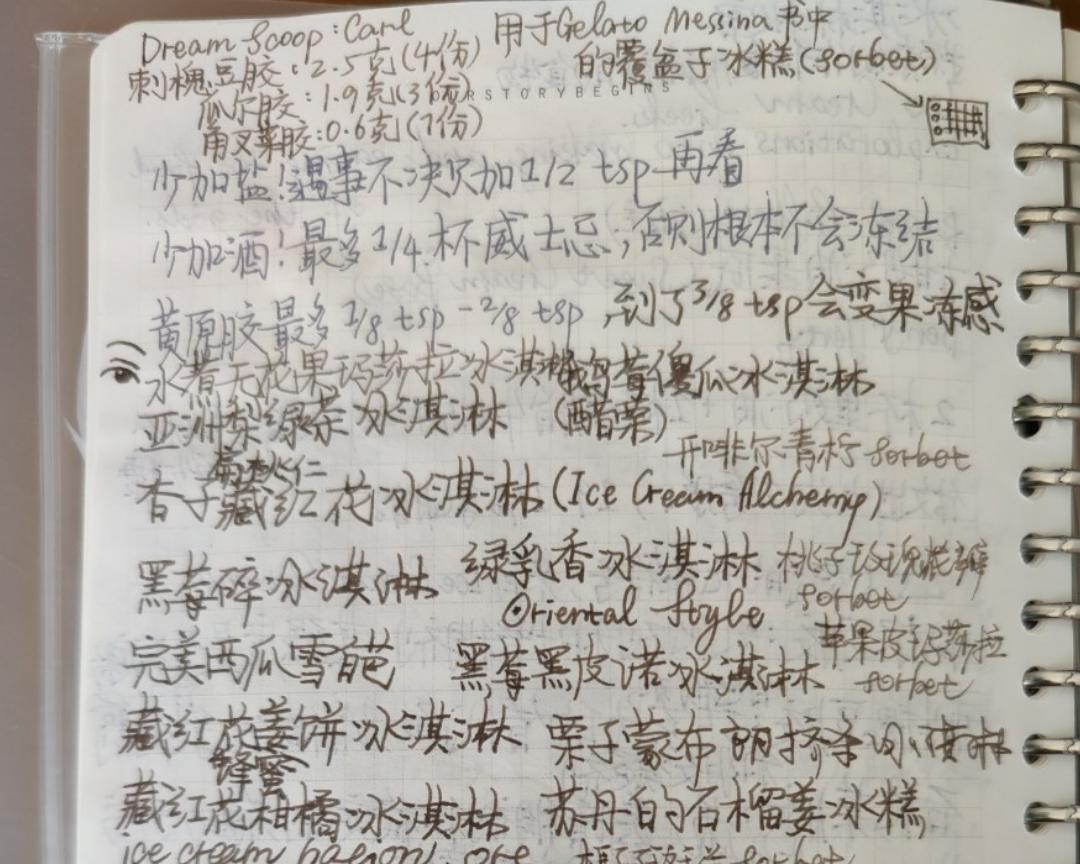 Dream Scoop : Carl 用于Gelato Messina书中
刺槐豆胶:2.5克(4份) 的覆盆子冰糕(sorbet)
瓜尔胶:1.9克(3份) RSTORYBEGINS
角叉菜胶:0.6克(1份)
少加盐!遇事不决只加1/2 tsp再看
少加酒!最多1/4杯威士忌,否则根本不会冻结
黄原胶最多1/8 tsp-2/8 tsp,到了3/8 tsp会变果冻感
水煮无花果玛莎拉冰淇淋 鹅莓傻瓜冰淇淋
亚洲梨绿茶冰淇淋 (醋栗)
开啡尔青柠sorbet
扁桃仁
杏子藏红花冰淇淋(Ice Cream Alchemy)
黑莓碎冰淇淋 绿乳香冰淇淋 桃子玫瑰花瓣
Oriental Style sorbet
完美西瓜雪葩 黑莓黑皮诺冰淇淋 苹果皮玛莎拉
sorbet
藏红花姜饼冰淇淋 栗子蒙布朗挤条冰淇淋
蜂蜜
藏红花柑橘冰淇淋 苏丹的石榴姜冰糕
ice cream sorbet